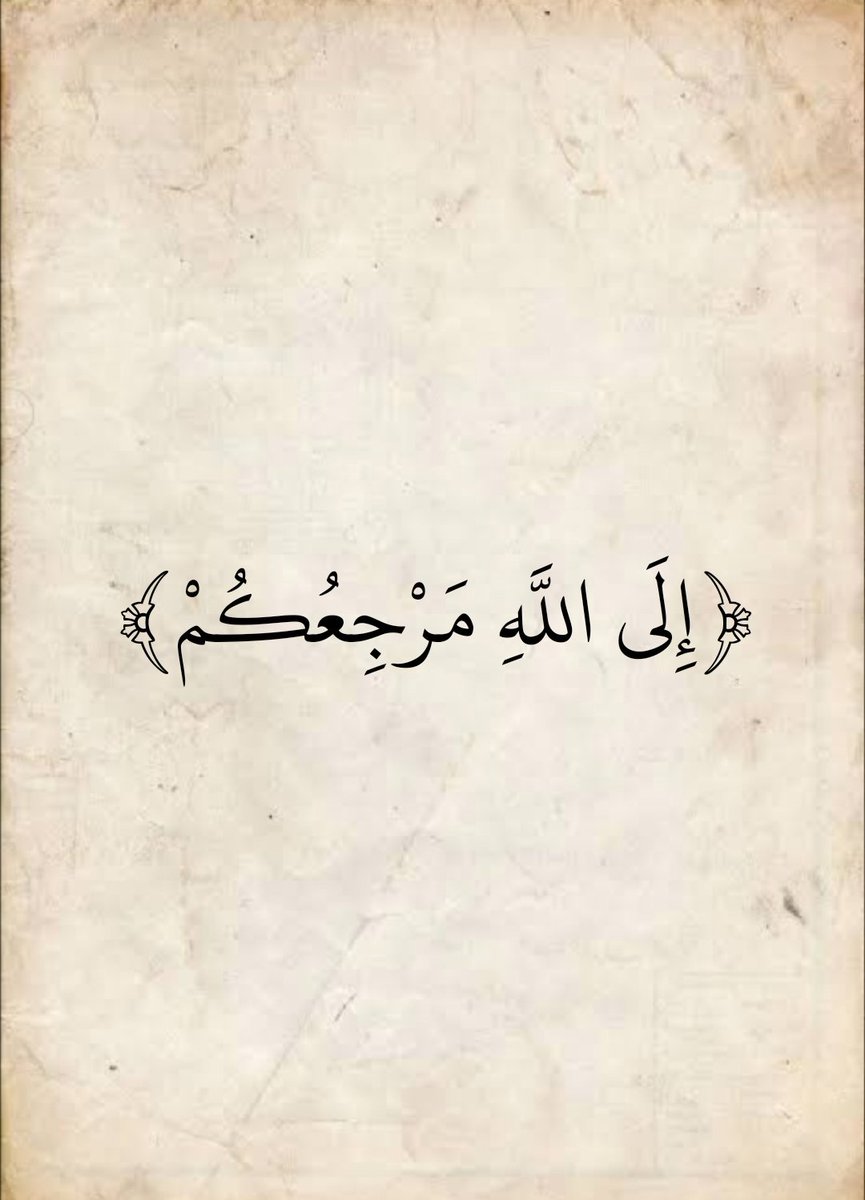 ﴿إِلَى اللَّهِ مَرْجِعُكُمْ﴾